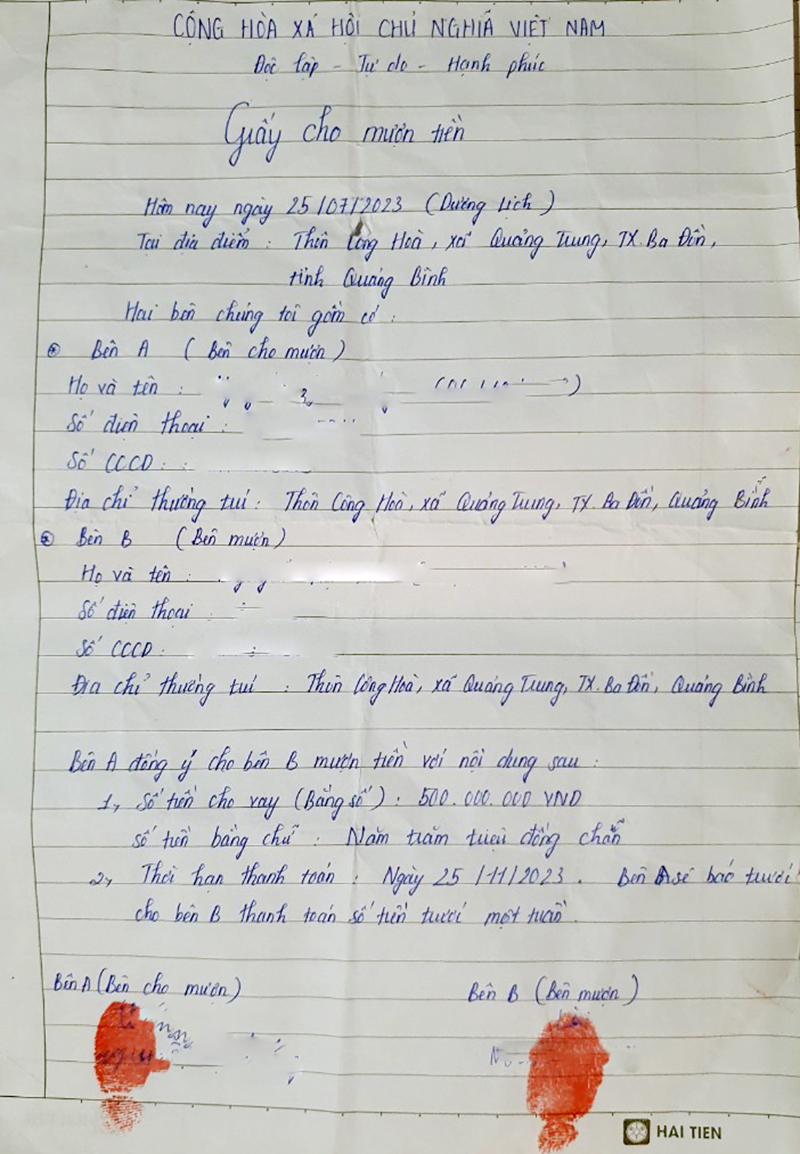 CỘNG HÒA XÁ HỘI CHỦ NGHIÃ VIỆT NAM
Độc lập - Tự do - Hạnh phúc
Giấy cho mượn tiền
Hôm nay ngày 25/07/2023 (Dương Lịch)
Tại địa điểm : Thôn Công Hoà, xã Quảng Trung, TX. Ba Đồn,
tỉnh Quảng Bình
Hai bên chúng tôi gồm có :
Bên A (Bên cho mượn)
Họ và tên :
Số điện thoại :
Số CCCD :
Địa chỉ thường trú : Thôn Công Hoà, xã Quảng Trung, TX. Ba Đồn, Quảng Bình
Bên B (Bên mượn)
Họ và tên :
Số điện thoại :
Số CCCD :
Địa chỉ thường trú : Thôn Công Hoà, xã Quảng Trung, TX. Ba Đồn, Quảng Bình
Bên A đồng ý cho bên B mượn tiền với nội dung sau :
1, Số tiền cho vay (Bằng số) : 500.000.000 VND
số tiền bằng chữ : Năm trăm triệu đồng chẵn
2, Thời hạn thanh toán : Ngày 25/11/2023. Bên A sẽ báo trước
cho bên B thanh toán số tiền trước một tuần.
Bên A (Bên cho mượn)
Bên B (Bên mượn)
HAI TIEN